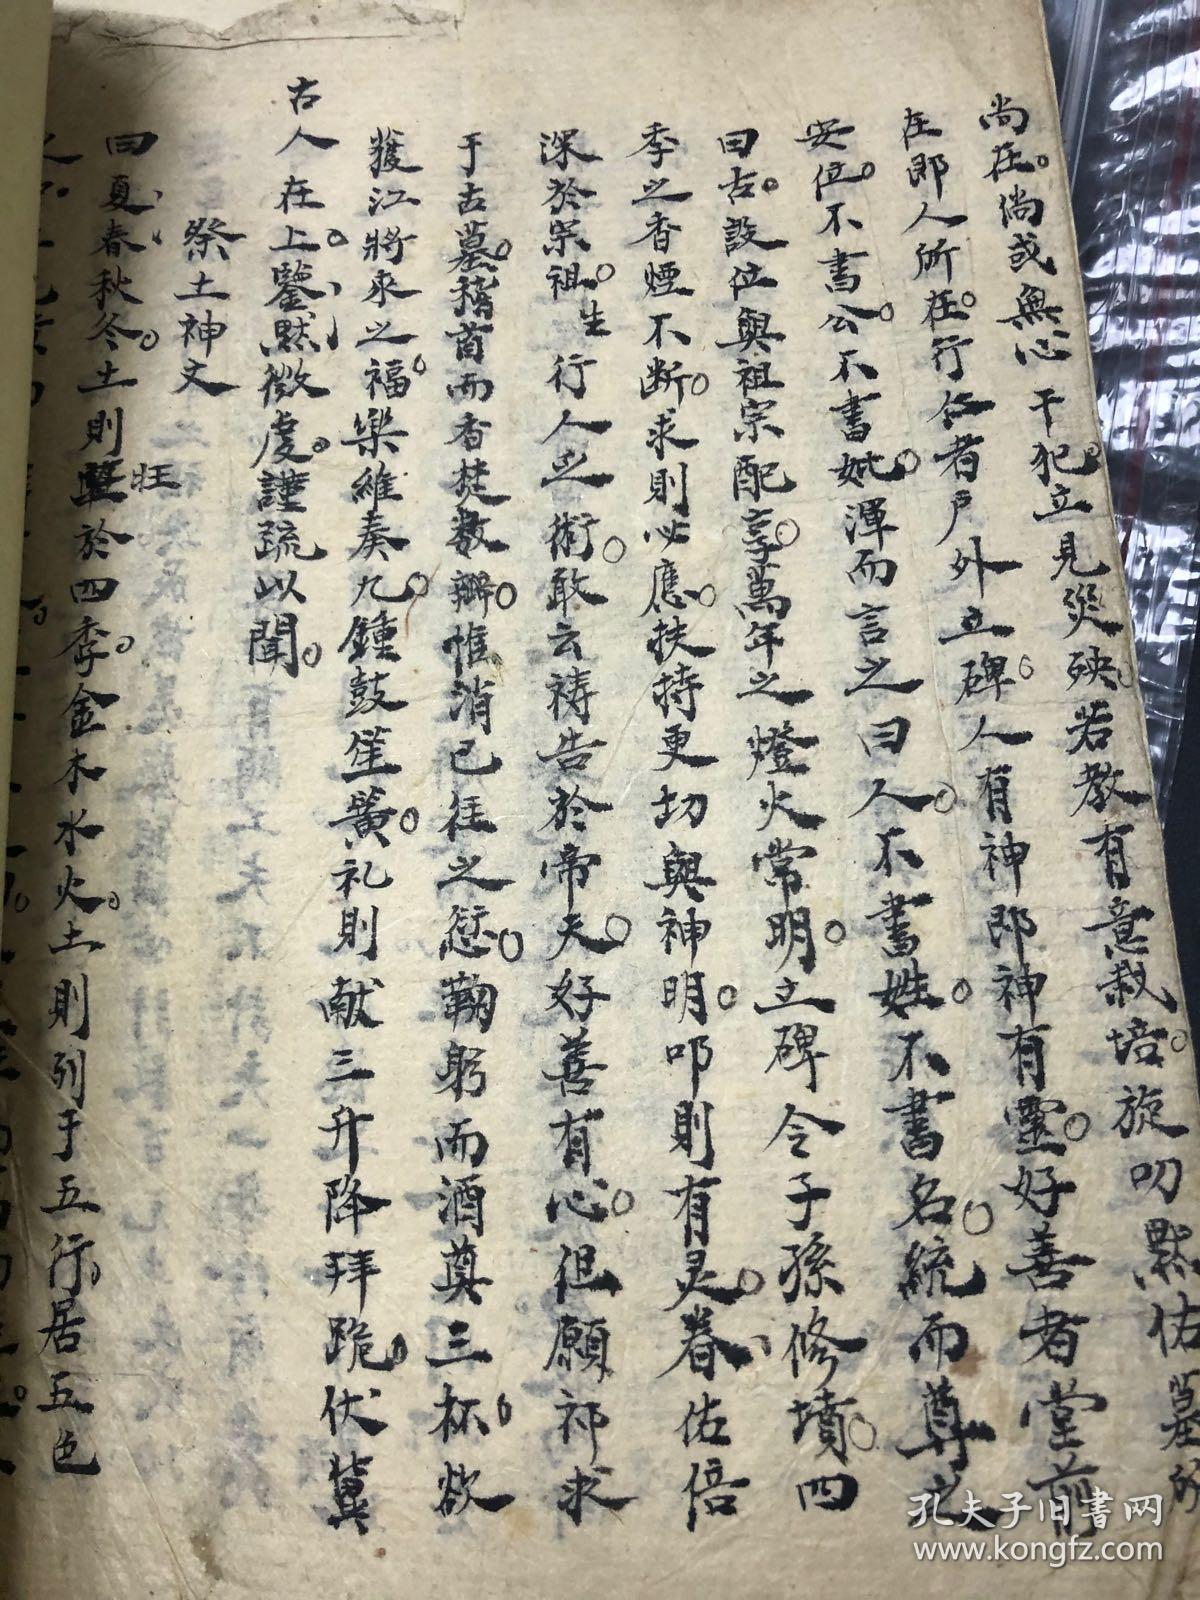 尚在。倘或無心干犯。立見災殃。若教有意栽培。旋叨默佑墓所
在即人所在。行仁者戶外立碑。人有神即神有靈。好善者堂前
安位。不書公。不書妣。渾而言之曰人。不書姓。不書名。統而尊之
曰古。設位與祖宗配享。萬年之燈火常明。立碑令子孫修墳。四
季之香煙不斷。求則必應。扶持更切與神明。叩則有灵。眷佑倍
深於宗祖。生行人之術。敢云祷告於帝天。好善有心。但願祁求
于古墓。稽首而香焚数瓣。惟消已往之愆。鞠躬而酒奠三杯。欲
獲江將來之福。樂維奏九。鍾鼓笙簧。礼則献三升降拜跪。伏冀
古人在上。鑒默微虔。謹疏以聞。
祭土神文
曰夏春秋冬。土則旺於四季。金木水火。土則列于五行。居五色
孔夫子旧書网
www.kongfz.com